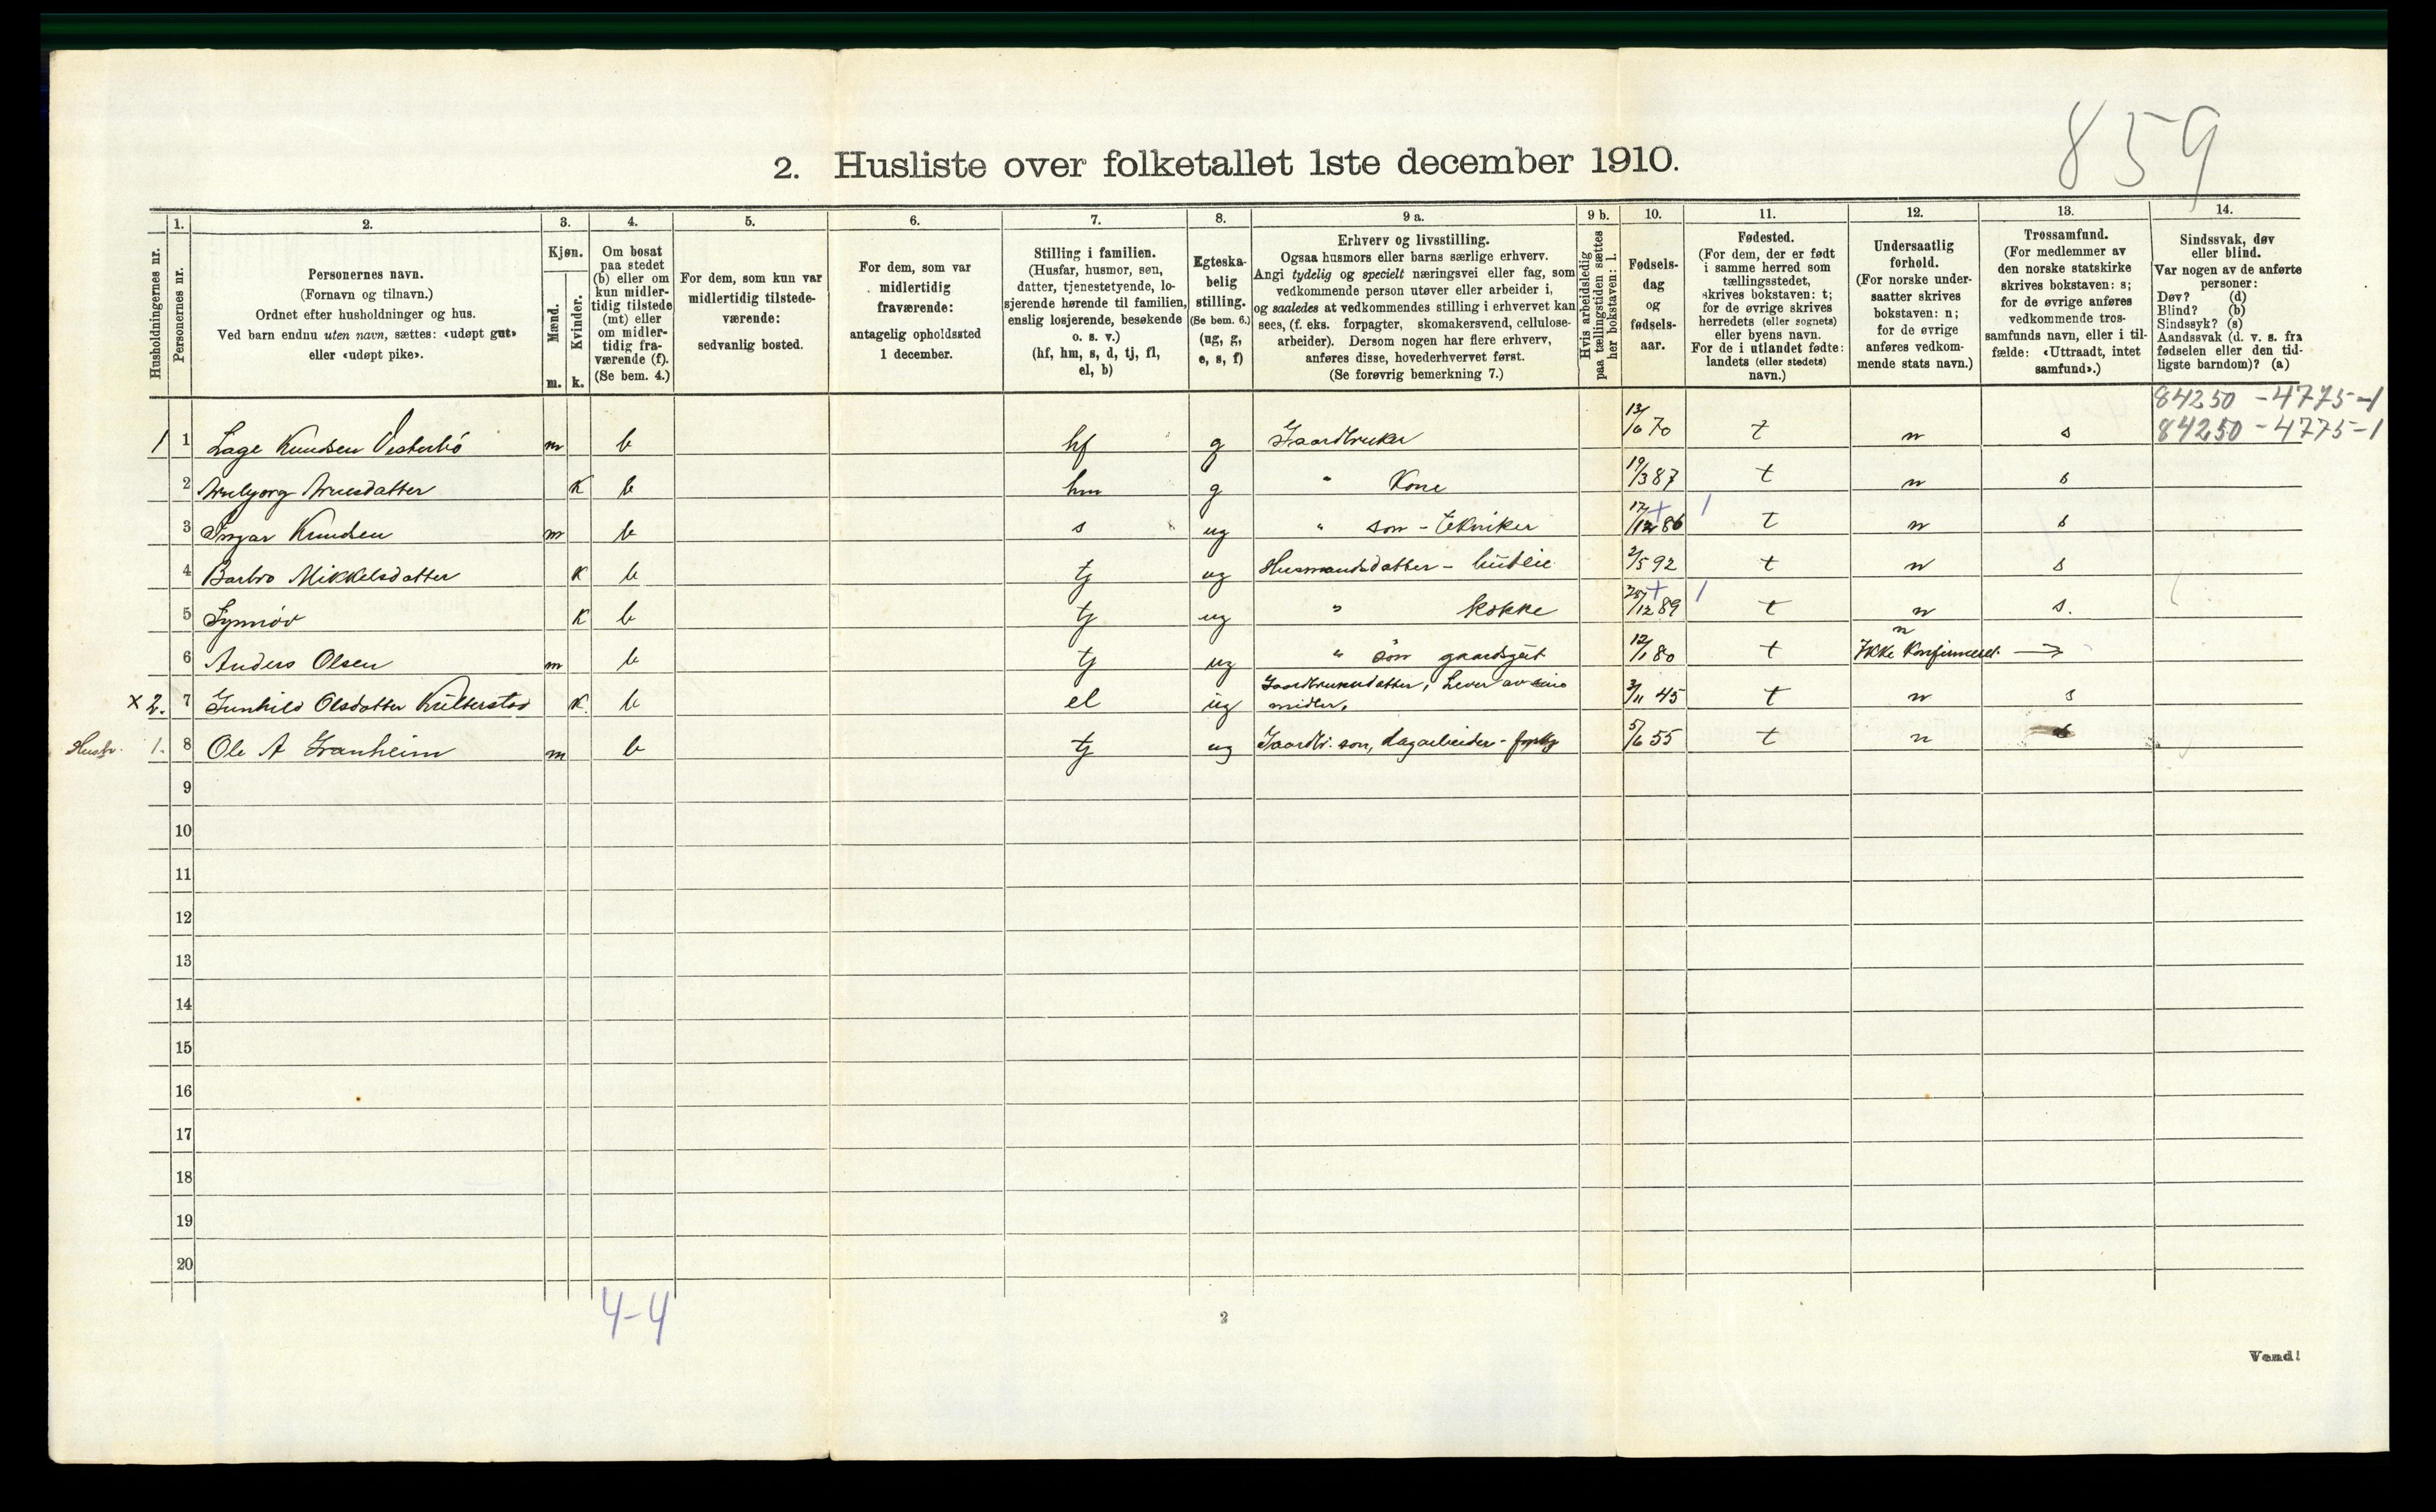 859
2. Husliste over folketallet 1ste december 1910.
Husholdningernes nr.
1.
Personernes nr.
2.
Personernes navn.
(Fornavn og tilnavn.)
Ordnet efter husholdninger og hus.
Ved barn endnu uten navn, sættes: «udøpt gut»
eller «udøpt pike».
3.
Kjøn.
Mænd.
Kvinder.
m. k.
4.
Om bosat
paa stedet
(b) eller om
kun midler-
tidig tilstede
(mt) eller
om midler-
tidig fra-
værende (f).
(Se bem. 4.)
5.
For dem, som kun var
midlertidig tilstede-
værende:
sedvanlig bosted.
6.
For dem, som var
midlertidig
fraværende:
antagelig opholdssted
1 december.
7.
Stilling i familien.
(Husfar, husmor, søn,
datter, tjenestetyende, lo-
sjerende hørende til familien,
enslig losjerende, besøkende
o. s. v.)
(hf, hm, s, d, tj, fl,
el, b)
8.
Egteska-
belig
stilling.
(Se bem. 6.)
(ug, g,
e, s, f)
9 a.
Erhverv og livsstilling.
Ogsaa husmors eller barns særlige erhverv.
Angi tydelig og specielt næringsvei eller fag, som
vedkommende person utøver eller arbeider i,
og saaledes at vedkommendes stilling i erhvervet kan
sees, (f. eks. forpagter, skomakersvend, cellulose-
arbeider). Dersom nogen har flere erhverv,
anføres disse, hovederhvervet først.
(Se forøvrig bemerkning 7.)
9 b.
Hvis arbeidsledig
paa tællingstiden sættes
her bokstaven: l.
10.
Fødsels-
dag
og
fødsels-
aar.
11.
Fødested.
(For dem, der er født
i samme herred som
tællingsstedet,
skrives bokstaven: t;
for de øvrige skrives
herredets (eller sognets)
eller byens navn.
For de i utlandet fødte:
landets (eller stedets)
navn.)
12.
Undersaatlig
forhold.
(For norske under-
saatter skrives
bokstaven: n;
for de øvrige
anføres vedkom-
mende stats navn.)
13.
Trossamfund.
(For medlemmer av
den norske statskirke
skrives bokstaven: s;
for de øvrige anføres
vedkommende tros-
samfunds navn, eller i til-
fælde: «Uttraadt, intet
samfund».)
14.
Sindssvak, døv
eller blind.
Var nogen av de anførte
personer:
Døv? (d)
Blind? (b)
Sindssyk? (s)
Aandssvak (d. v. s. fra
fødselen eller den tid-
ligste barndom)? (a)
84250 - 4775 - 1
84250 - 4775 - 1
1 1 Lage Knudsen Vesterbö m b hf g Gaardbruker 13/6 70 t n s
2 Arnbjorg Arnesdatter K b hm g " Kone 19/3 87 t n s
3 Ingar Knudsen m b s ug " son - tekniker 17/12 86 + 1 t n s
4 Barbro Mikkelsdatter K b tj ug Husmandsdatter - 2/5 92 t n s
5 Synnöv K b tj ug " kokke 25/12 89 + 1 t n s.
6 Anders Olsen m b tj ug " sön gaardsgut 12/1 80 t n Ikke Konfirmeret. →
x 2. 7 Gunhild Olsdatter K b el ug Gaardbrukerdatter, Lever av sine
midler, 3/11 45 t n s
Husbr. 1. 8 Ole A Granheim m b tj ug Gaardbr. son, dagarbeider - 5/6 55 t n s
9
10
11
12
13
14
15
16
17
18
19
20
4-4
2
Vend!